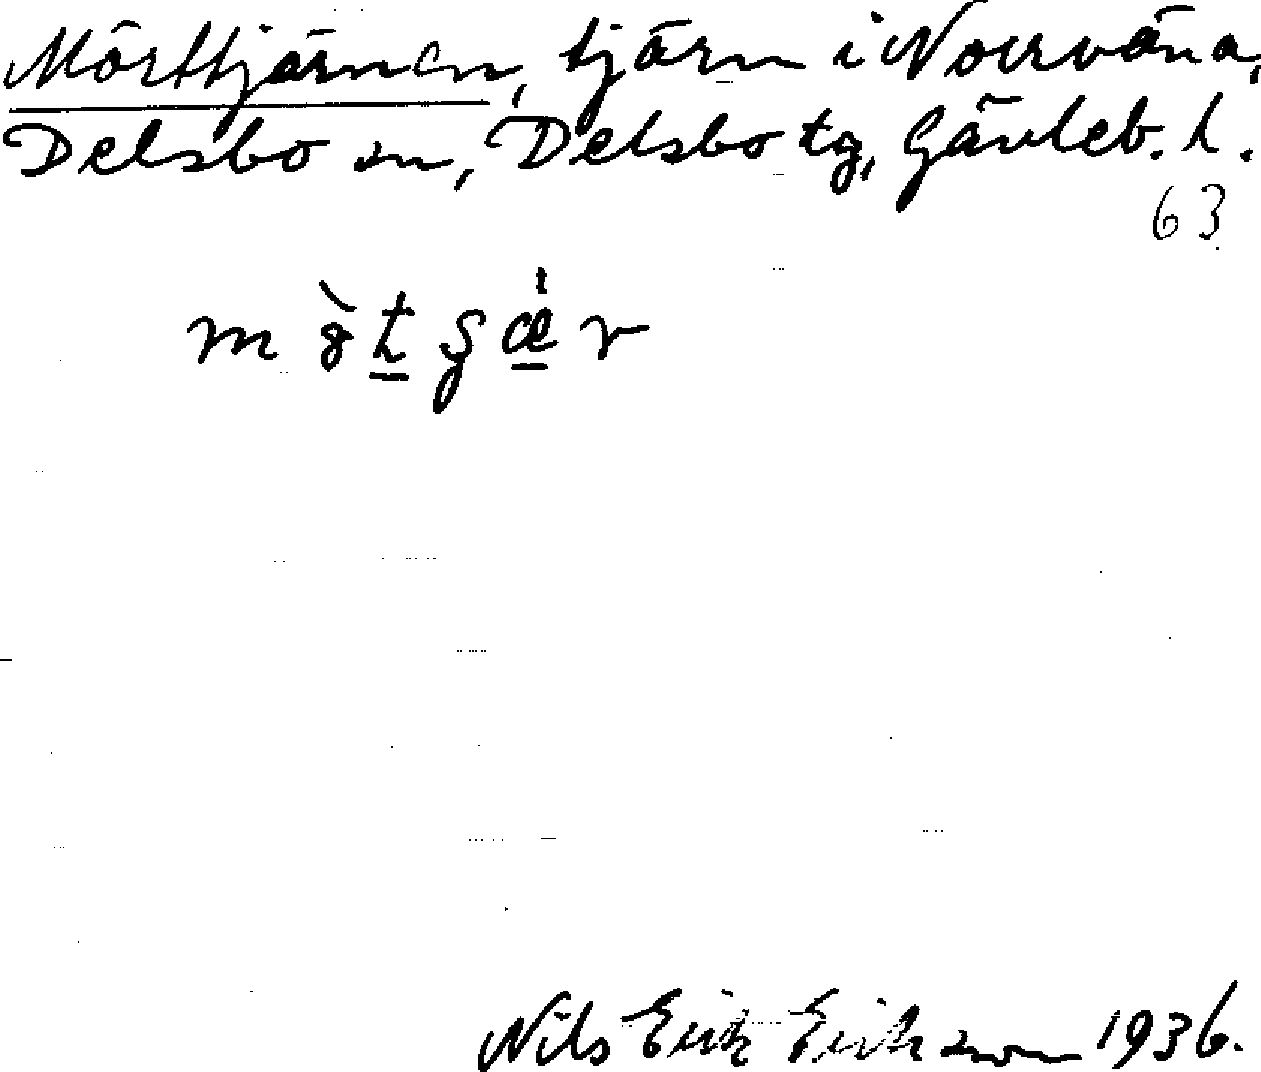 Mörttjärnen, tjärn i Norrväna,
Delsbo sn, Delsbo tg, Gävleb. l.
63
Nils Erik Erikson 1936.